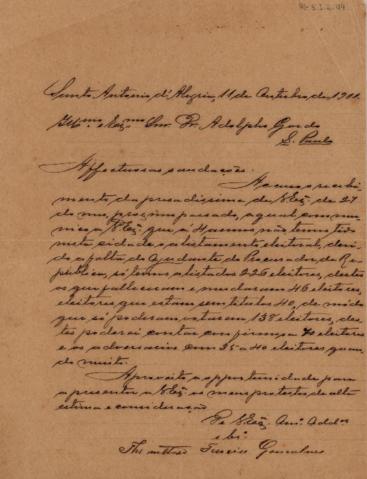 Santo Antonio d'Alegria, 11 de Outubro de 1901.
Illmo. e Exmo. Snr. Dr. Adolpho Gordo
S. Paulo
Affectuosas saudações.
Accuso o recebi-
mento da presadissima de V. Exa. de 27
do mez proximo passado, a qual com-
a V. Exa. que á 4 annos não temos tido
nesta cidade o alistamento eleitoral, devi-
do a falta do Ajudante do Procurador da Re-
publica, só temos alistados 226 eleitores, destes
os que falleceram e mudaram 46 eleitores,
eleitores que estam sem titulos 40, de modo
que só poderam votarem 138 eleitores, des-
tes poderei contar com firmesa 90 eleitores
e os adversarios com 35 a 40 eleitores quan-
do muito.
Aproveito a opportunidade para
apresentar a V. Exa. os meus protestos de alta
estima e consideração
De V. Exa. Amo. Addor.
e
Gonçalves